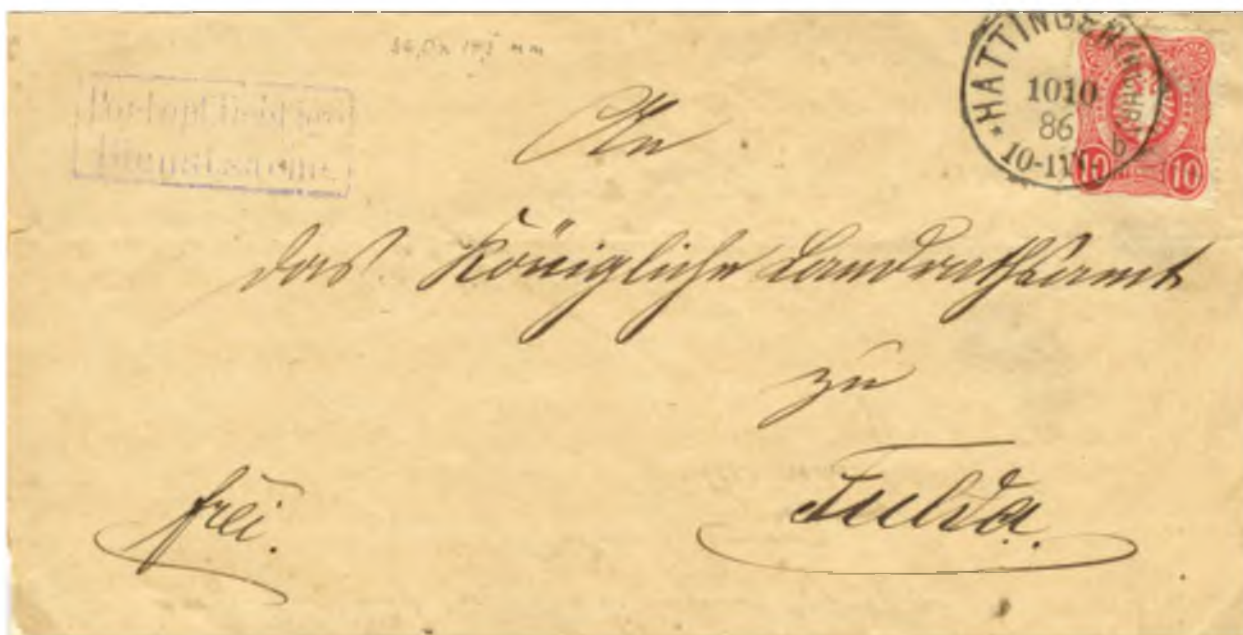 Portopflichtige
Dienstsache.
HATTINGEN (RUHR) b
10 10
86
10-11V.
10 10
An
das Königliche Landrathsamt
zu
Fulda.
frei.